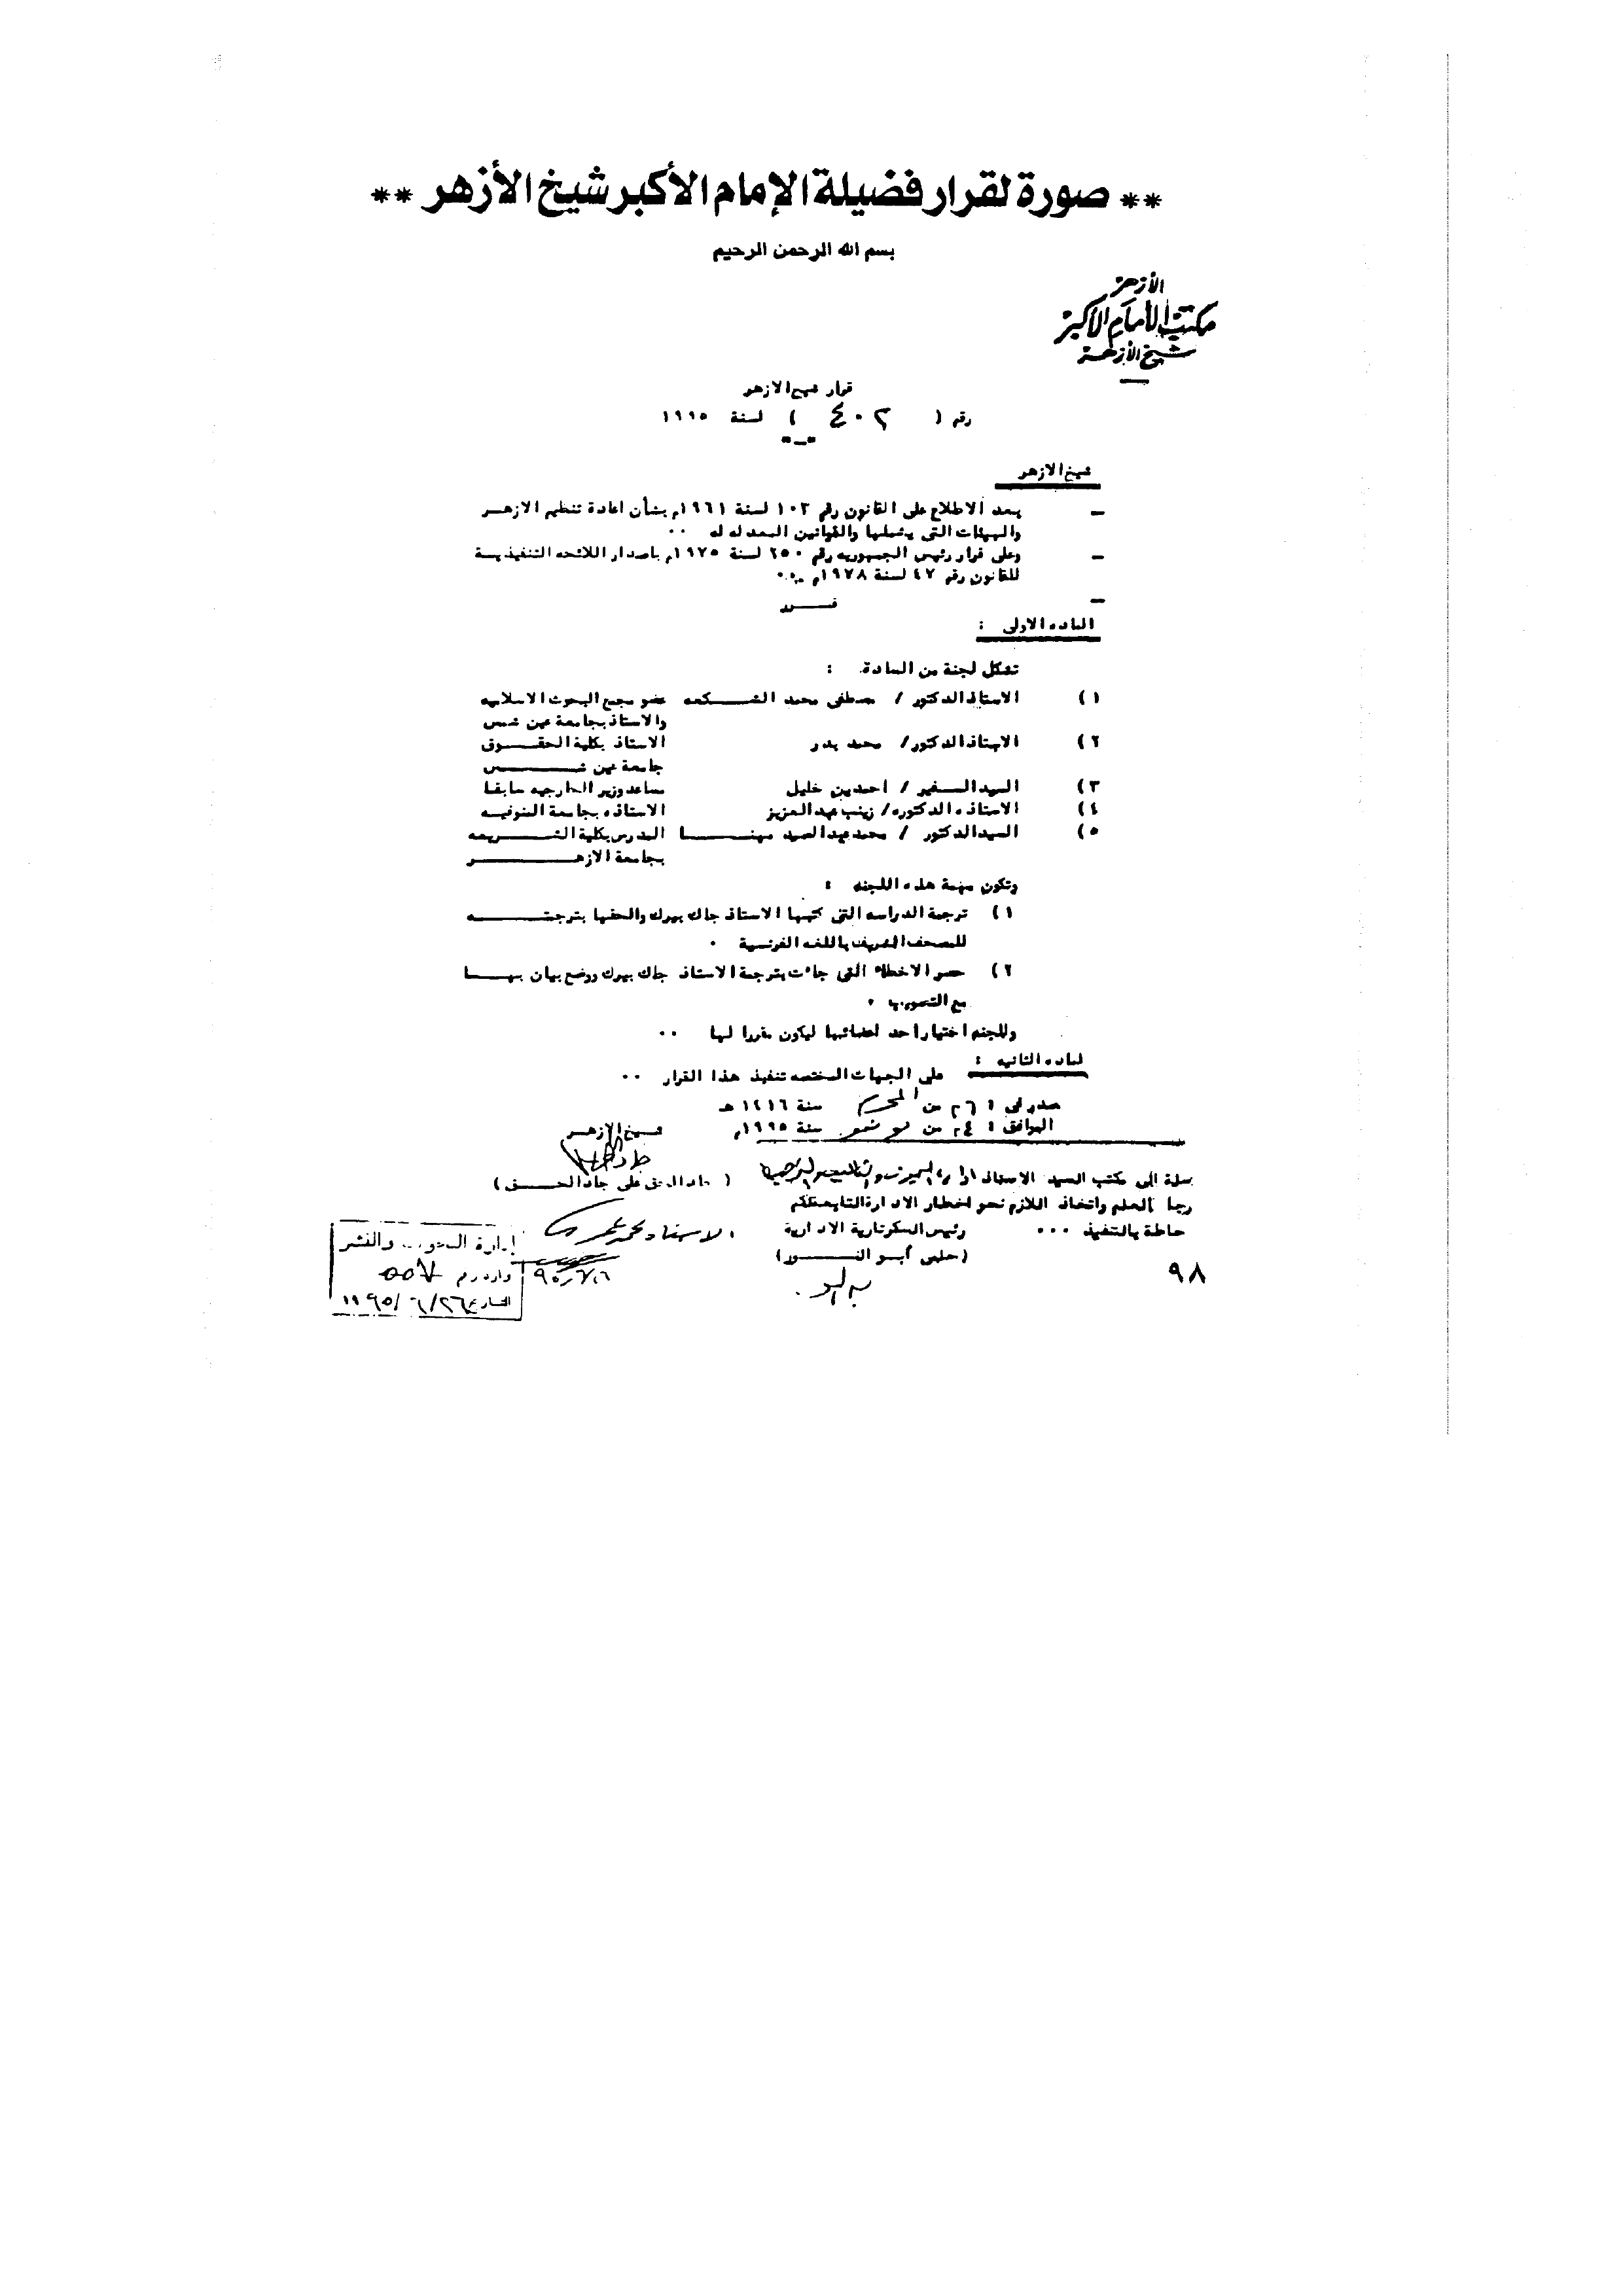 ** صورة لقرار فضيلة الإمام الأكبر شيخ الأزهر **
بسم الله الرحمن الرحيم
الأزهر
مكتب الامام الأكبر
شيخ الأزهر
قرار شيخ الازهر
رقم ( ٤٠٢ ) لسنة ١٩٩٥
شيخ الازهر
بعد الاطلاع على القانون رقم ١٠٣ لسنة ١٩٦١م بشأن اعادة تنظيم الازهر
والهيئات التى يشملها والقوانين المعدله له ٠٠
وعلى قرار رئيس الجمهوريه رقم ٢٥٠ لسنة ١٩٧٥م باصدار اللائحه التنفيذية
للقانون رقم ٤٧ لسنة ١٩٧٨م
قرر
الماده الاولى :
تشكل لجنة من السادة :
١ ) الاستاذ الدكتور / مصطفى محمد الشكعه عضو مجمع البحوث الاسلاميه
والاستاذ بجامعة عين شمس
٢ ) الاستاذ الدكتور / محمد بدر الاستاذ بكلية الحقوق
جامعة عين شمس
٣ ) السيد السفير / احمد بن خليل مساعد وزير الخارجيه سابقا
٤ ) الاستاذه الدكتوره / زينب عبد العزيز الاستاذه بجامعة المنوفيه
٥ ) السيد الدكتور / محمد عبد الصمد مهنا المدرس بكلية الشريعه
بجامعة الازهر
وتكون مهمة هذه اللجنه :
١ ) ترجمة الدراسه التى كتبها الاستاذ جاك بيرك والحقها بترجمته
للمصحف الشريف باللغه الفرنسية ٠
٢ ) حصر الاخطاء التى جاءت بترجمة الاستاذ جاك بيرك ووضع بيان بها
مع التصويب ٠
وللجنه اختيار احد اعضائها ليكون مقررا لها ٠٠
لماده الثانيه :
على الجهات المختصه تنفيذ هذا القرار ٠٠
صدر فى : ٢٦ من المحرم سنة ١٤١٦ هـ
الموافق : ٢٤ من يونيو سنة ١٩٩٥م
شيخ الازهر
( جاد الحق على جاد الحق )
الى مكتب السيد الاستاذ
رجا العلم واتخاذ اللازم نحو اخطار الادارة التابعة لكم
حاطة بالتنفيذ ٠٠٠
رئيس السكرتارية الادارية
( حلمى أبو النور )
إدارة البحوث والنشر
وارد رقم ٥٥٧
١٩٩٥/٦/٢٦
٩٨